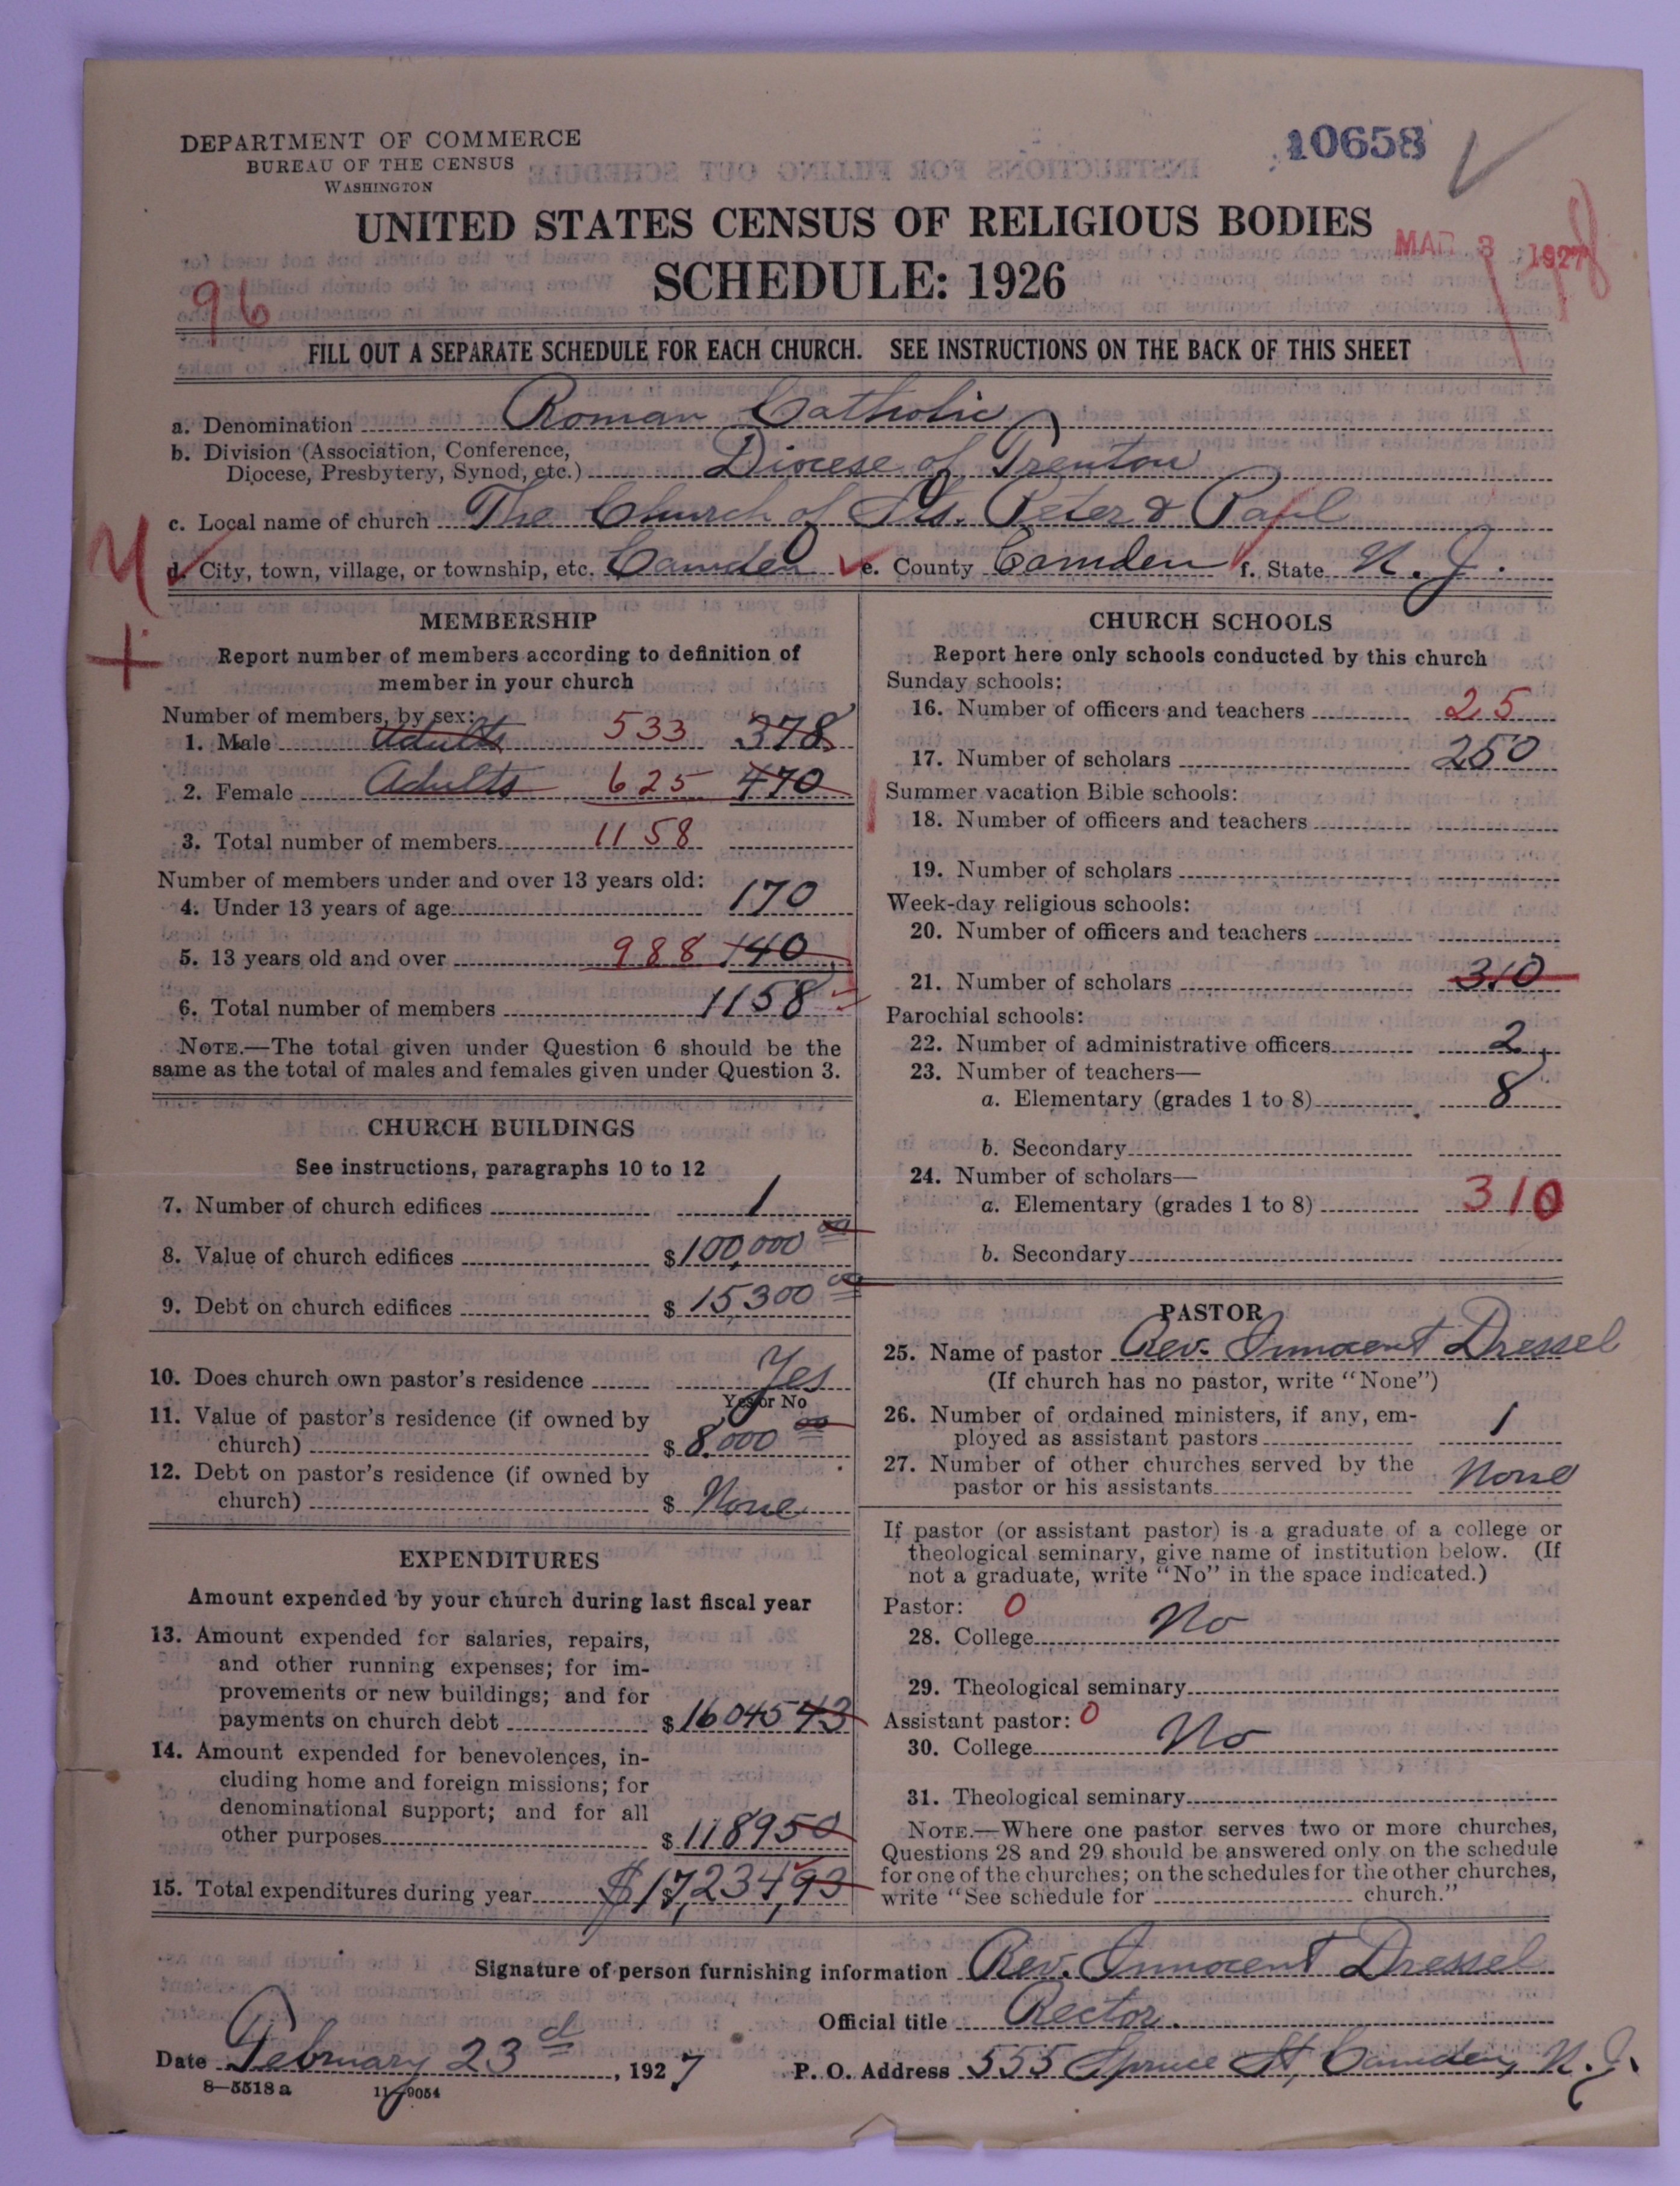 DEPARTMENT OF COMMERCE
BUREAU OF THE CENSUS
WASHINGTON
10658
UNITED STATES CENSUS OF RELIGIOUS BODIES
MAR 3 1927
SCHEDULE: 1926
96
FILL OUT A SEPARATE SCHEDULE FOR EACH CHURCH. SEE INSTRUCTIONS ON THE BACK OF THIS SHEET
a. Denomination Roman Catholic
b. Division (Association, Conference,
Diocese, Presbytery, Synod, etc.) Diocese of Trenton
c. Local name of church The Church of Sts. Peter & Paul
d. City, town, village, or township, etc. Camden e. County Camden f. State N. J.
MEMBERSHIP
Report number of members according to definition of
member in your church
Number of members, by sex:
1. Male Adults 533 378
2. Female Adults 625 470
3. Total number of members 1158
Number of members under and over 13 years old:
4. Under 13 years of age 170
5. 13 years old and over 988 140
6. Total number of members 1158
NOTE.—The total given under Question 6 should be the
same as the total of males and females given under Question 3.
CHURCH BUILDINGS
See instructions, paragraphs 10 to 12
7. Number of church edifices 1
8. Value of church edifices $100,000 00
9. Debt on church edifices $15300 00
10. Does church own pastor's residence Yes
Yes or No
11. Value of pastor's residence (if owned by
church) $8,000 00
12. Debt on pastor's residence (if owned by
church) $ None
EXPENDITURES
Amount expended by your church during last fiscal year
13. Amount expended for salaries, repairs,
and other running expenses; for im-
provements or new buildings; and for
payments on church debt $16045 43
14. Amount expended for benevolences, in-
cluding home and foreign missions; for
denominational support; and for all
other purposes $118950
15. Total expenditures during year $17,234,93
CHURCH SCHOOLS
Report here only schools conducted by this church
Sunday schools:
16. Number of officers and teachers 25
17. Number of scholars 250
Summer vacation Bible schools:
18. Number of officers and teachers
19. Number of scholars
Week-day religious schools:
20. Number of officers and teachers
21. Number of scholars 310
Parochial schools:
22. Number of administrative officers 2
23. Number of teachers—
a. Elementary (grades 1 to 8) 8
b. Secondary
24. Number of scholars—
a. Elementary (grades 1 to 8) 310
b. Secondary
PASTOR
25. Name of pastor Rev. Innocent Dressel
(If church has no pastor, write "None")
26. Number of ordained ministers, if any, em-
ployed as assistant pastors 1
27. Number of other churches served by the
pastor or his assistants None
If pastor (or assistant pastor) is a graduate of a college or
theological seminary, give name of institution below. (If
not a graduate, write "No" in the space indicated.)
Pastor: 0
28. College No
29. Theological seminary
Assistant pastor: 0
30. College No
31. Theological seminary
NOTE.—Where one pastor serves two or more churches,
Questions 28 and 29 should be answered only on the schedule
for one of the churches; on the schedules for the other churches,
write "See schedule for church."
Signature of person furnishing information Rev. Innocent Dressel
Official title Rector.
Date February 23d, 1927 P. O. Address 555 Spruce St, Camden, N. J.
8—5518 a 11—9054